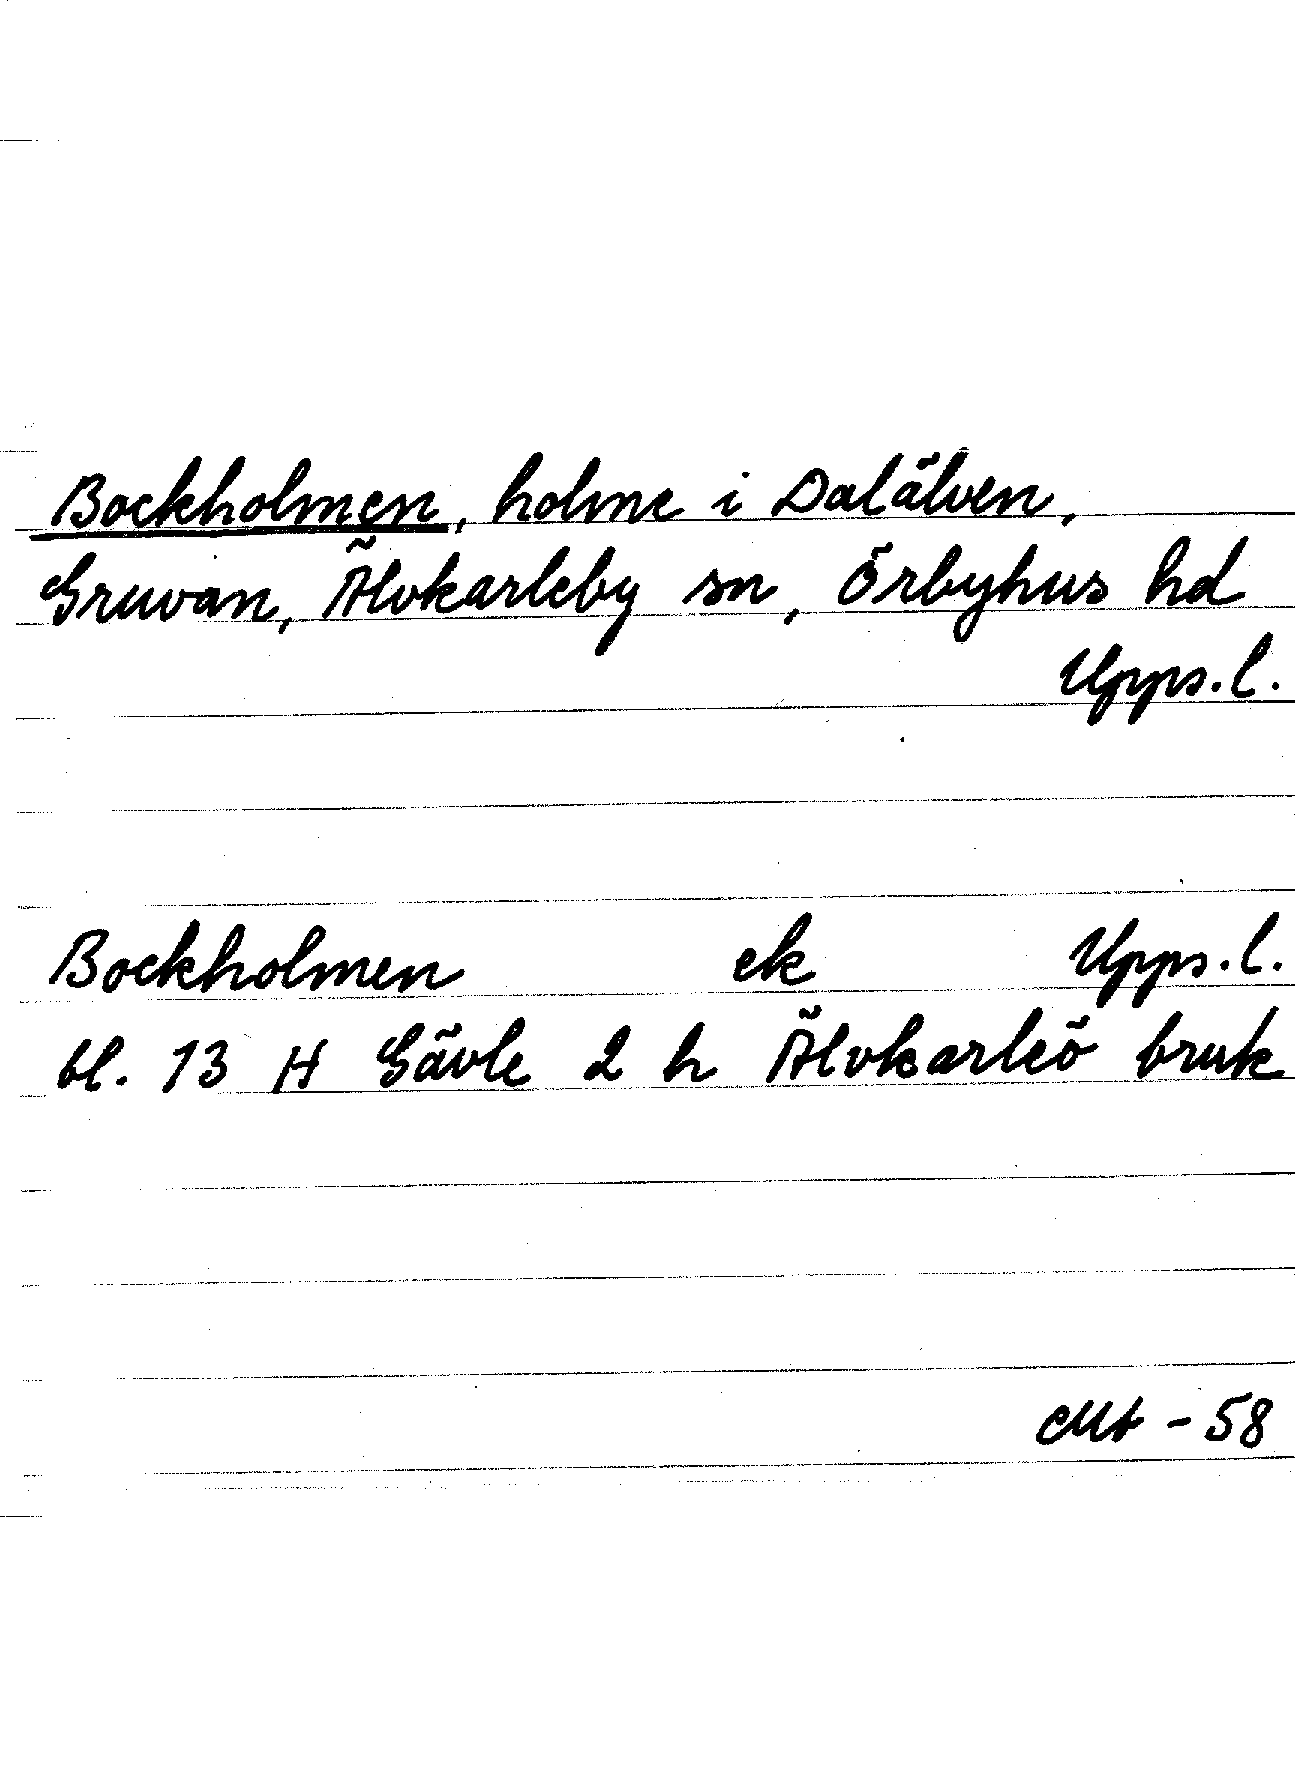 Bockholmen, holme i Dalälven,
Gruvan, Älvkarleby sn, Örbyhus hd
Upps.l.
Bockholmen ek Upps.l.
bl. 13 H Gävle 2 h Älvkarleö bruk
-58